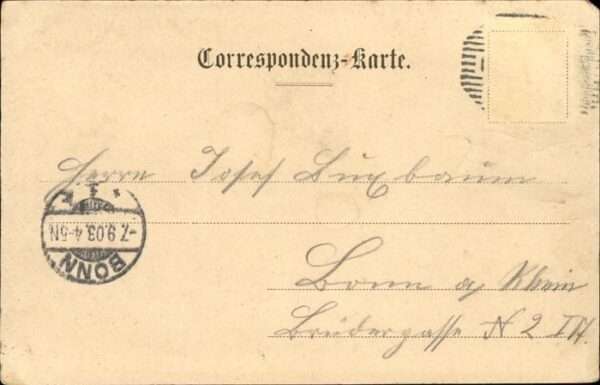 Correspondenz-Karte.
Herrn Josef Buxbaum
-7.9.03.4-5N
BONN
Bonn a/ Rhein
Brüdergasse N 2 I